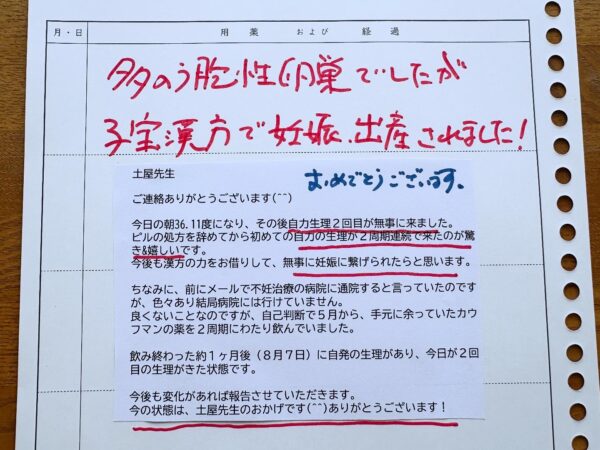 月・日 用薬および経過
多のう胞性卵巣でしたが
子宝漢方で妊娠、出産されました！
おめでとうございます。
土屋先生
ご連絡ありがとうございます(^^)
今日の朝36.11度になり、その後自力生理２回目が無事に来ました。
ピルの処方を辞めてから初めての自力の生理が２周期連続で来たのが驚
き&嬉しいです。
今後も漢方の力をお借りして、無事に妊娠に繋げられたらと思います。
ちなみに、前にメールで不妊治療の病院に通院すると言っていたのです
が、色々あり結局病院には行けていません。
良くないことなのですが、自己判断で５月から、手元に余っていたカウ
フマンの薬を２周期にわたり飲んでいました。
飲み終わった約１ヶ月後（８月７日）に自発の生理があり、今日が２回
目の生理がきた状態です。
今後も変化があれば報告させていただきます。
今の状態は、土屋先生のおかげです(^^)ありがとうございます！